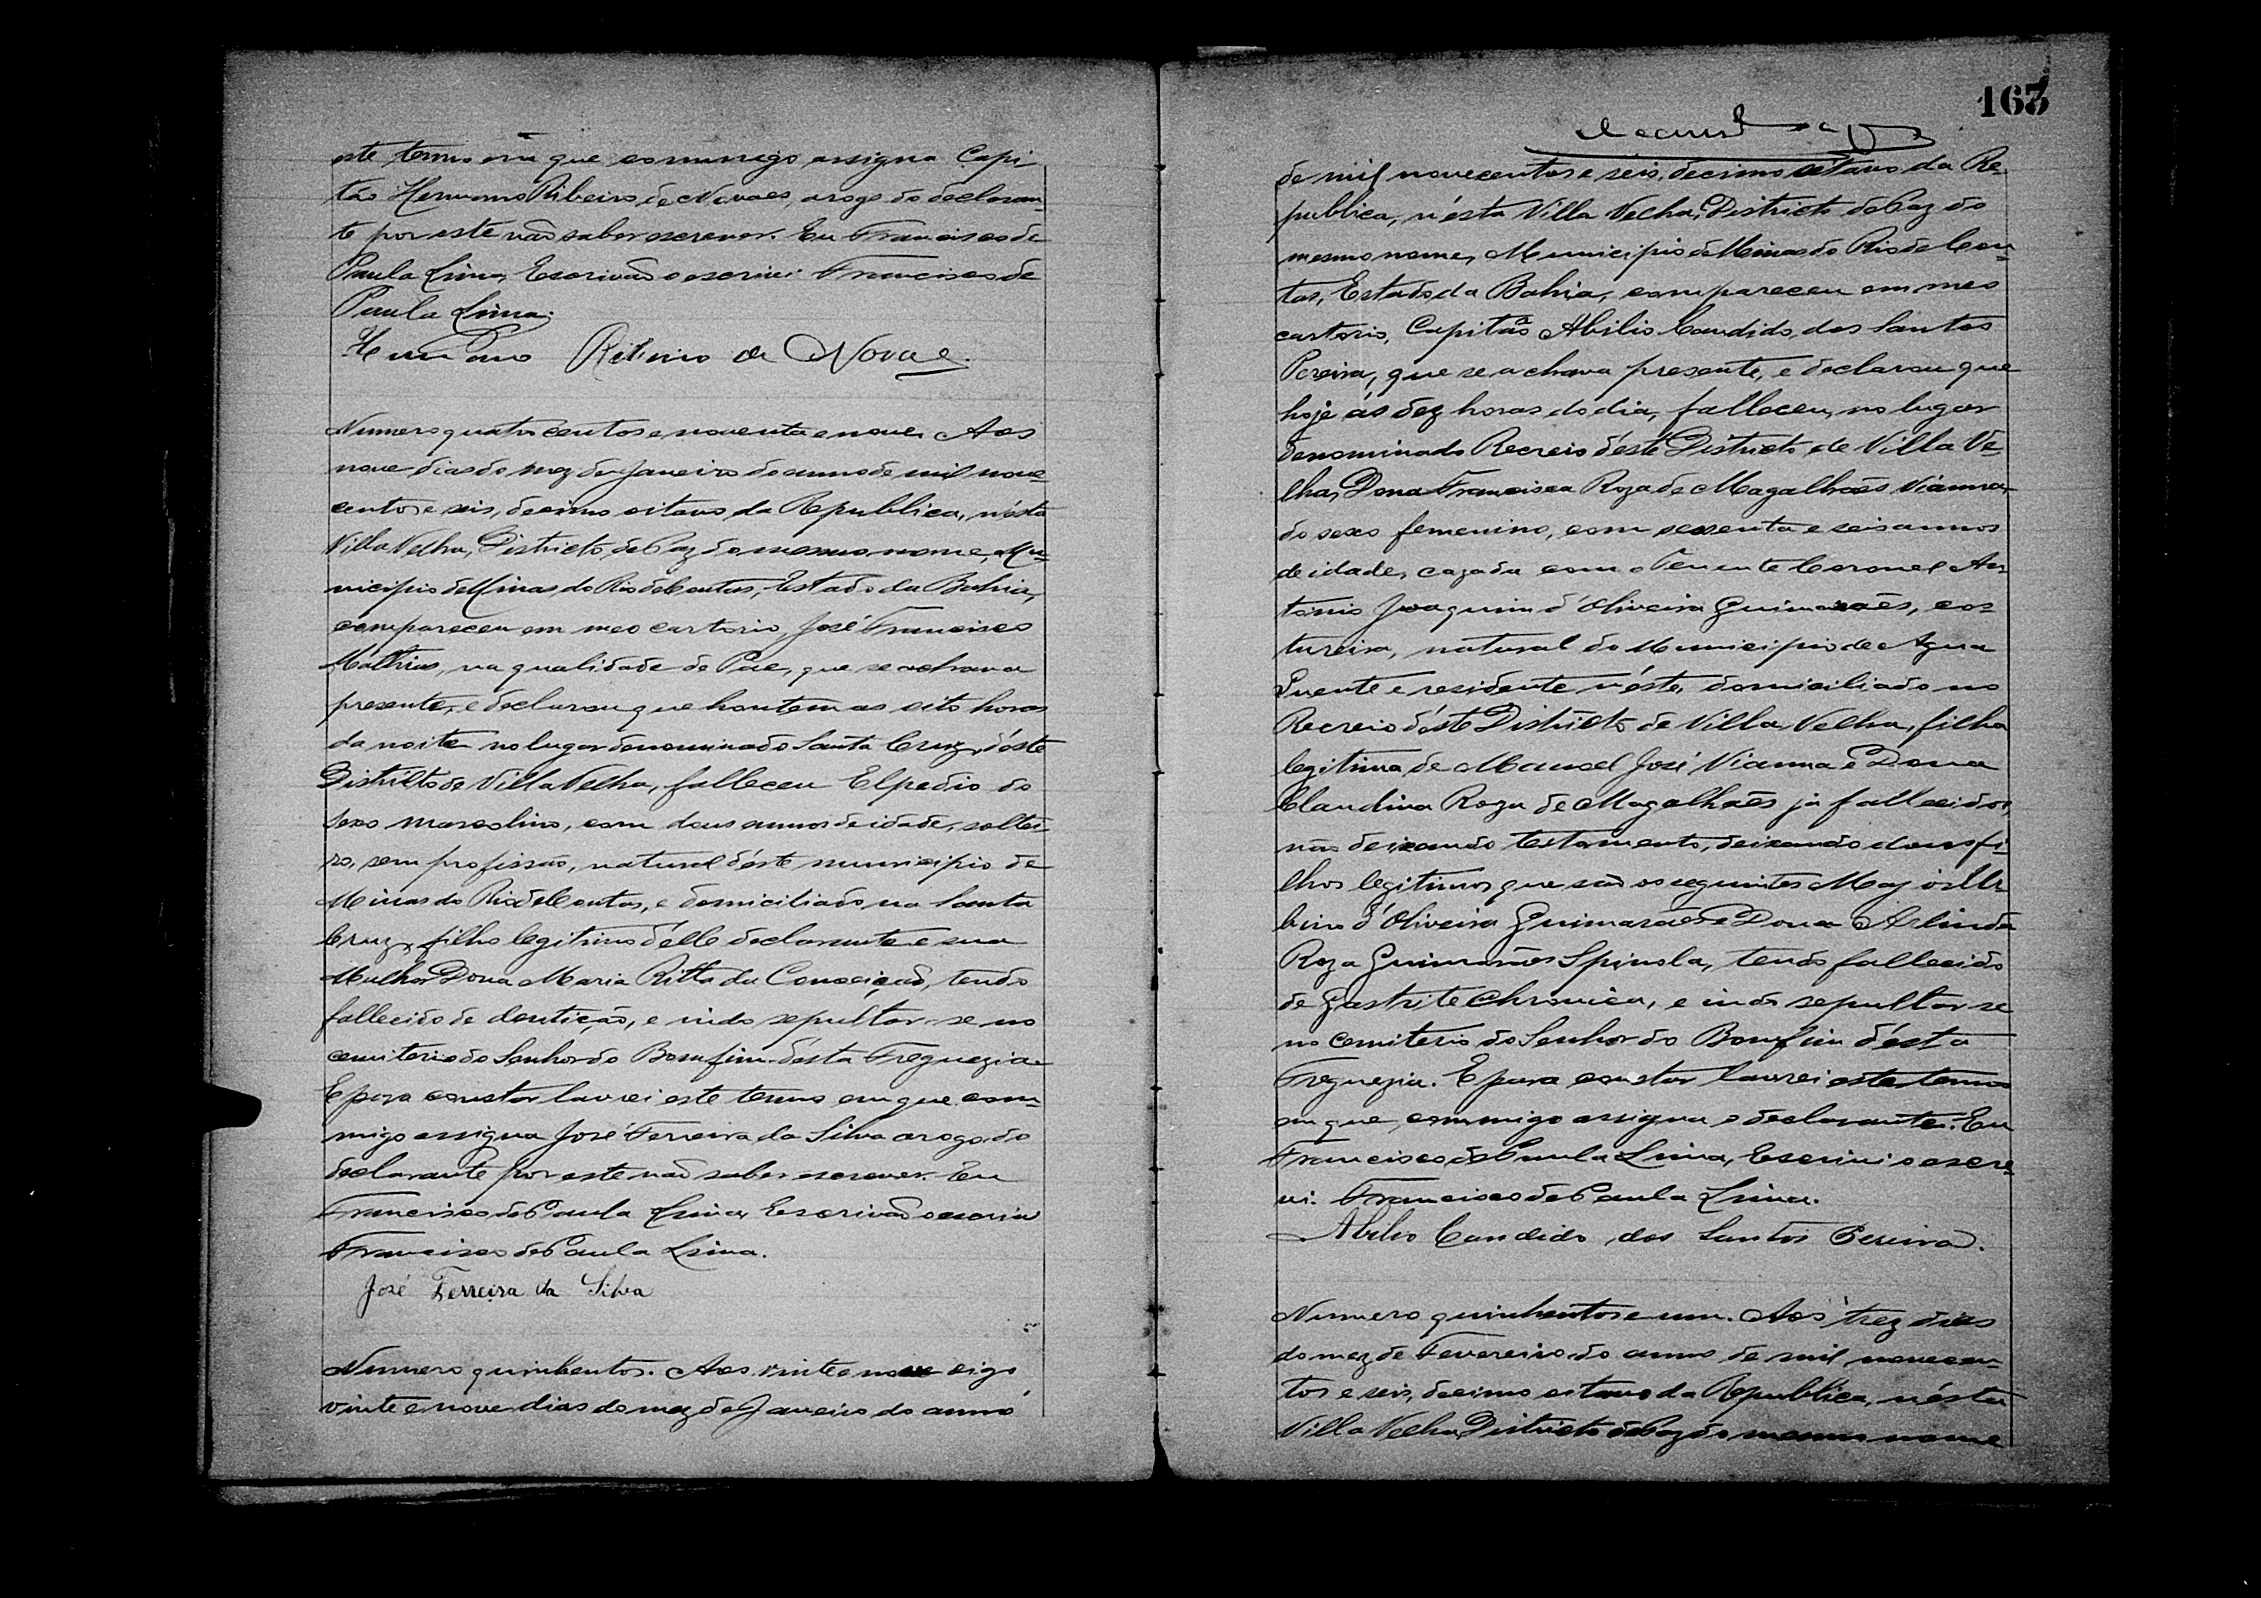 este termo em que commigo assigna Capi-
tão Hermano Ribeiro de Novaes, arogo do declaran-
te por este não saber escrever. Eu Francisco de
Paula Lima, Escrivão o escrivi Francisco de
Paula Lima.
Hermano Ribeiro de Novaes.
Numero quatro centos e noventa e nove. Aos
nove dias do mez de Janeiro do anno de mil nove-
centos e seis, decimo oitavo da Republica, n'esta
Villa Velha, Districto de Paz do mesmo nome, Mu-
nicipio de Minas do Rio de Contas, Estado da Bahia,
compareceu em meo cartorio, José Francisco
Mathias, na qualidade de Pae, que se achava
presente, e declarou que hontem as oito horas
da noite no lugar denominado Santa Cruz, d'este
Districto de Villa Velha, falleceu Elpedio do
sexo mascolino, com dous annos de idade, soltei-
ro, sem profissão, natural d'este municipio de
Minas do Rio de Contas, e domiciliado na Santa
Cruz, filho legitimo d'elle declarante e sua
Mulher Dona Maria Ritta da Conceição, tendo
fallecido de dentição, e indo sepultar-se no
cemiterio do Senhor do Bomfim d'esta Freguezia
E para constar lavrei este termo em que com-
migo assigna José Ferreira da Silva arogo do
declarante por este não saber escrever. Eu
Francisco de Paula Lima, Escrivão o escrivi
Francisco de Paula Lima.
José Ferreira da Silva
Numero quinhentos. Aos vinte e nove digo
vinte e nove dias do mez de Janeiro do anno
163
de mil novecentos e seis, decimo oitavo da Re-
publica, n'esta Villa Velha, Districto de Paz do
mesmo nome, Municipio de Minas do Rio de Con-
tas, Estado da Bahia, compareceu em meo
cartorio, Capitão Abilio Candido dos Santos
Pereira, que se achava presente, e declarou que
hoje ás dez horas do dia, falleceu, no lugar
denominado Recreio d'este Districto de Villa Ve-
lha, Dona Francisca Roza de Magalhães Vianna
do sexo femenino, com sessenta e seis annos
de idade, cazada com o Tenente Coronel An-
tonio Joaquim d'Oliveira Guimarães, cos-
tureira, natural do Municipio de Agua
Quente e residente n'este, domiciliado no
Recreio d'este Districto de Villa Velha, filha
legitima de Manoel José Vianna e Dona
Claudina Roza de Magalhães já fallecidos,
não deixando testamento, deixando dous fi-
lhos legitimos que são os seguintes Major
d'Oliveira Guimarães e Dona Arlinda
Roza Guimarães Spinola, tendo fallecido
de Gastrite Chronica, e indo sepultar-se
no Cemiterio do Senhor do Bomfim d'esta
Freguezia. E para constar lavrei este termo
em que commigo assigna o declarante. Eu
Francisco de Paula Lima, Escrivi o escre-
vi. Francisco de Paula Lima.
Abilio Candido dos Santos Pereira.
Numero quinhentos e um. Aos trez dias
do mez de Fevereiro do anno de mil novecen-
tos e seis, decimo oitavo da Republica, n'esta
Villa Velha, Districto de Paz do mesmo nome